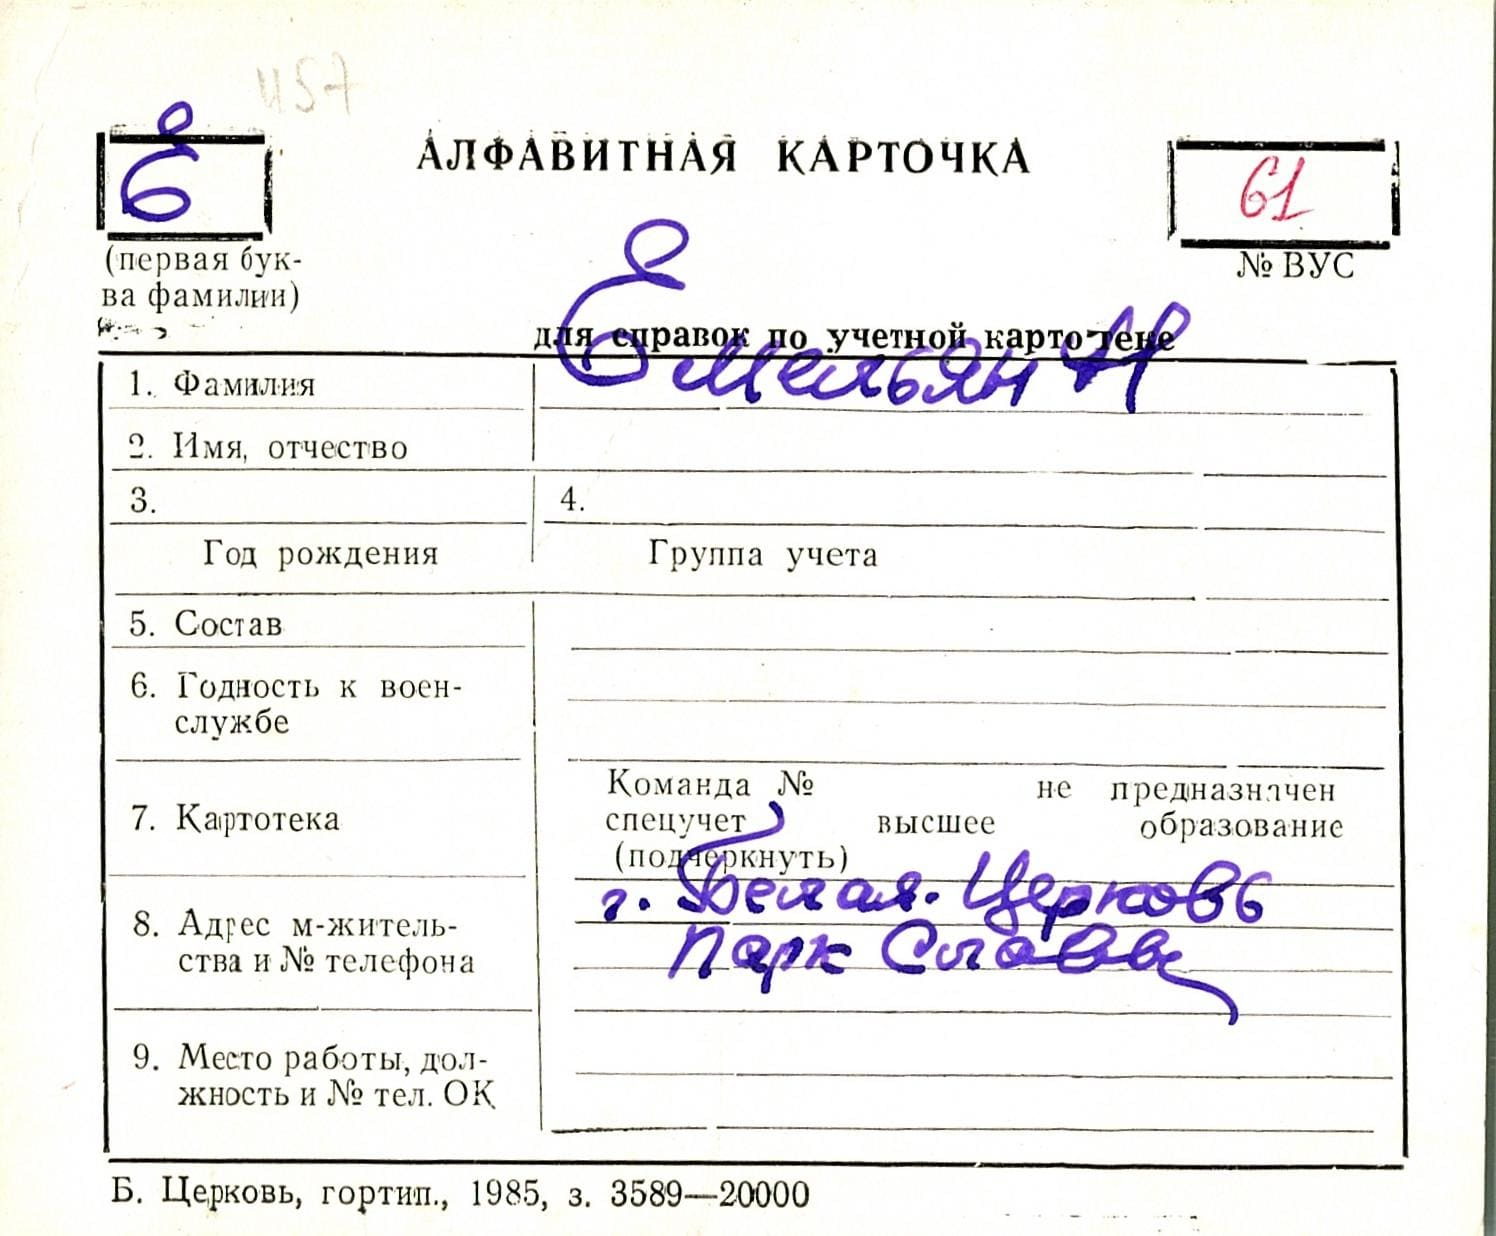 457
Е
АЛФАВИТНАЯ КАРТОЧКА
61
(первая бук-
ва фамилии)
№ ВУС
для справок по учетной картотеке
1. Фамилия Емельян Н
2. Имя, отчество
3. 4.
Год рождения Группа учета
5. Состав
6. Годность к воен-
службе
7. Картотека
Команда № не предназначен
спецучет высшее образование
(подчеркнуть)
8. Адрес м-житель-
ства и № телефона
г. Белая. Церковь
парк Славы
9. Место работы, дол-
жность и № тел. ОК
Б. Церковь, гортип., 1985, з. 3589—20000